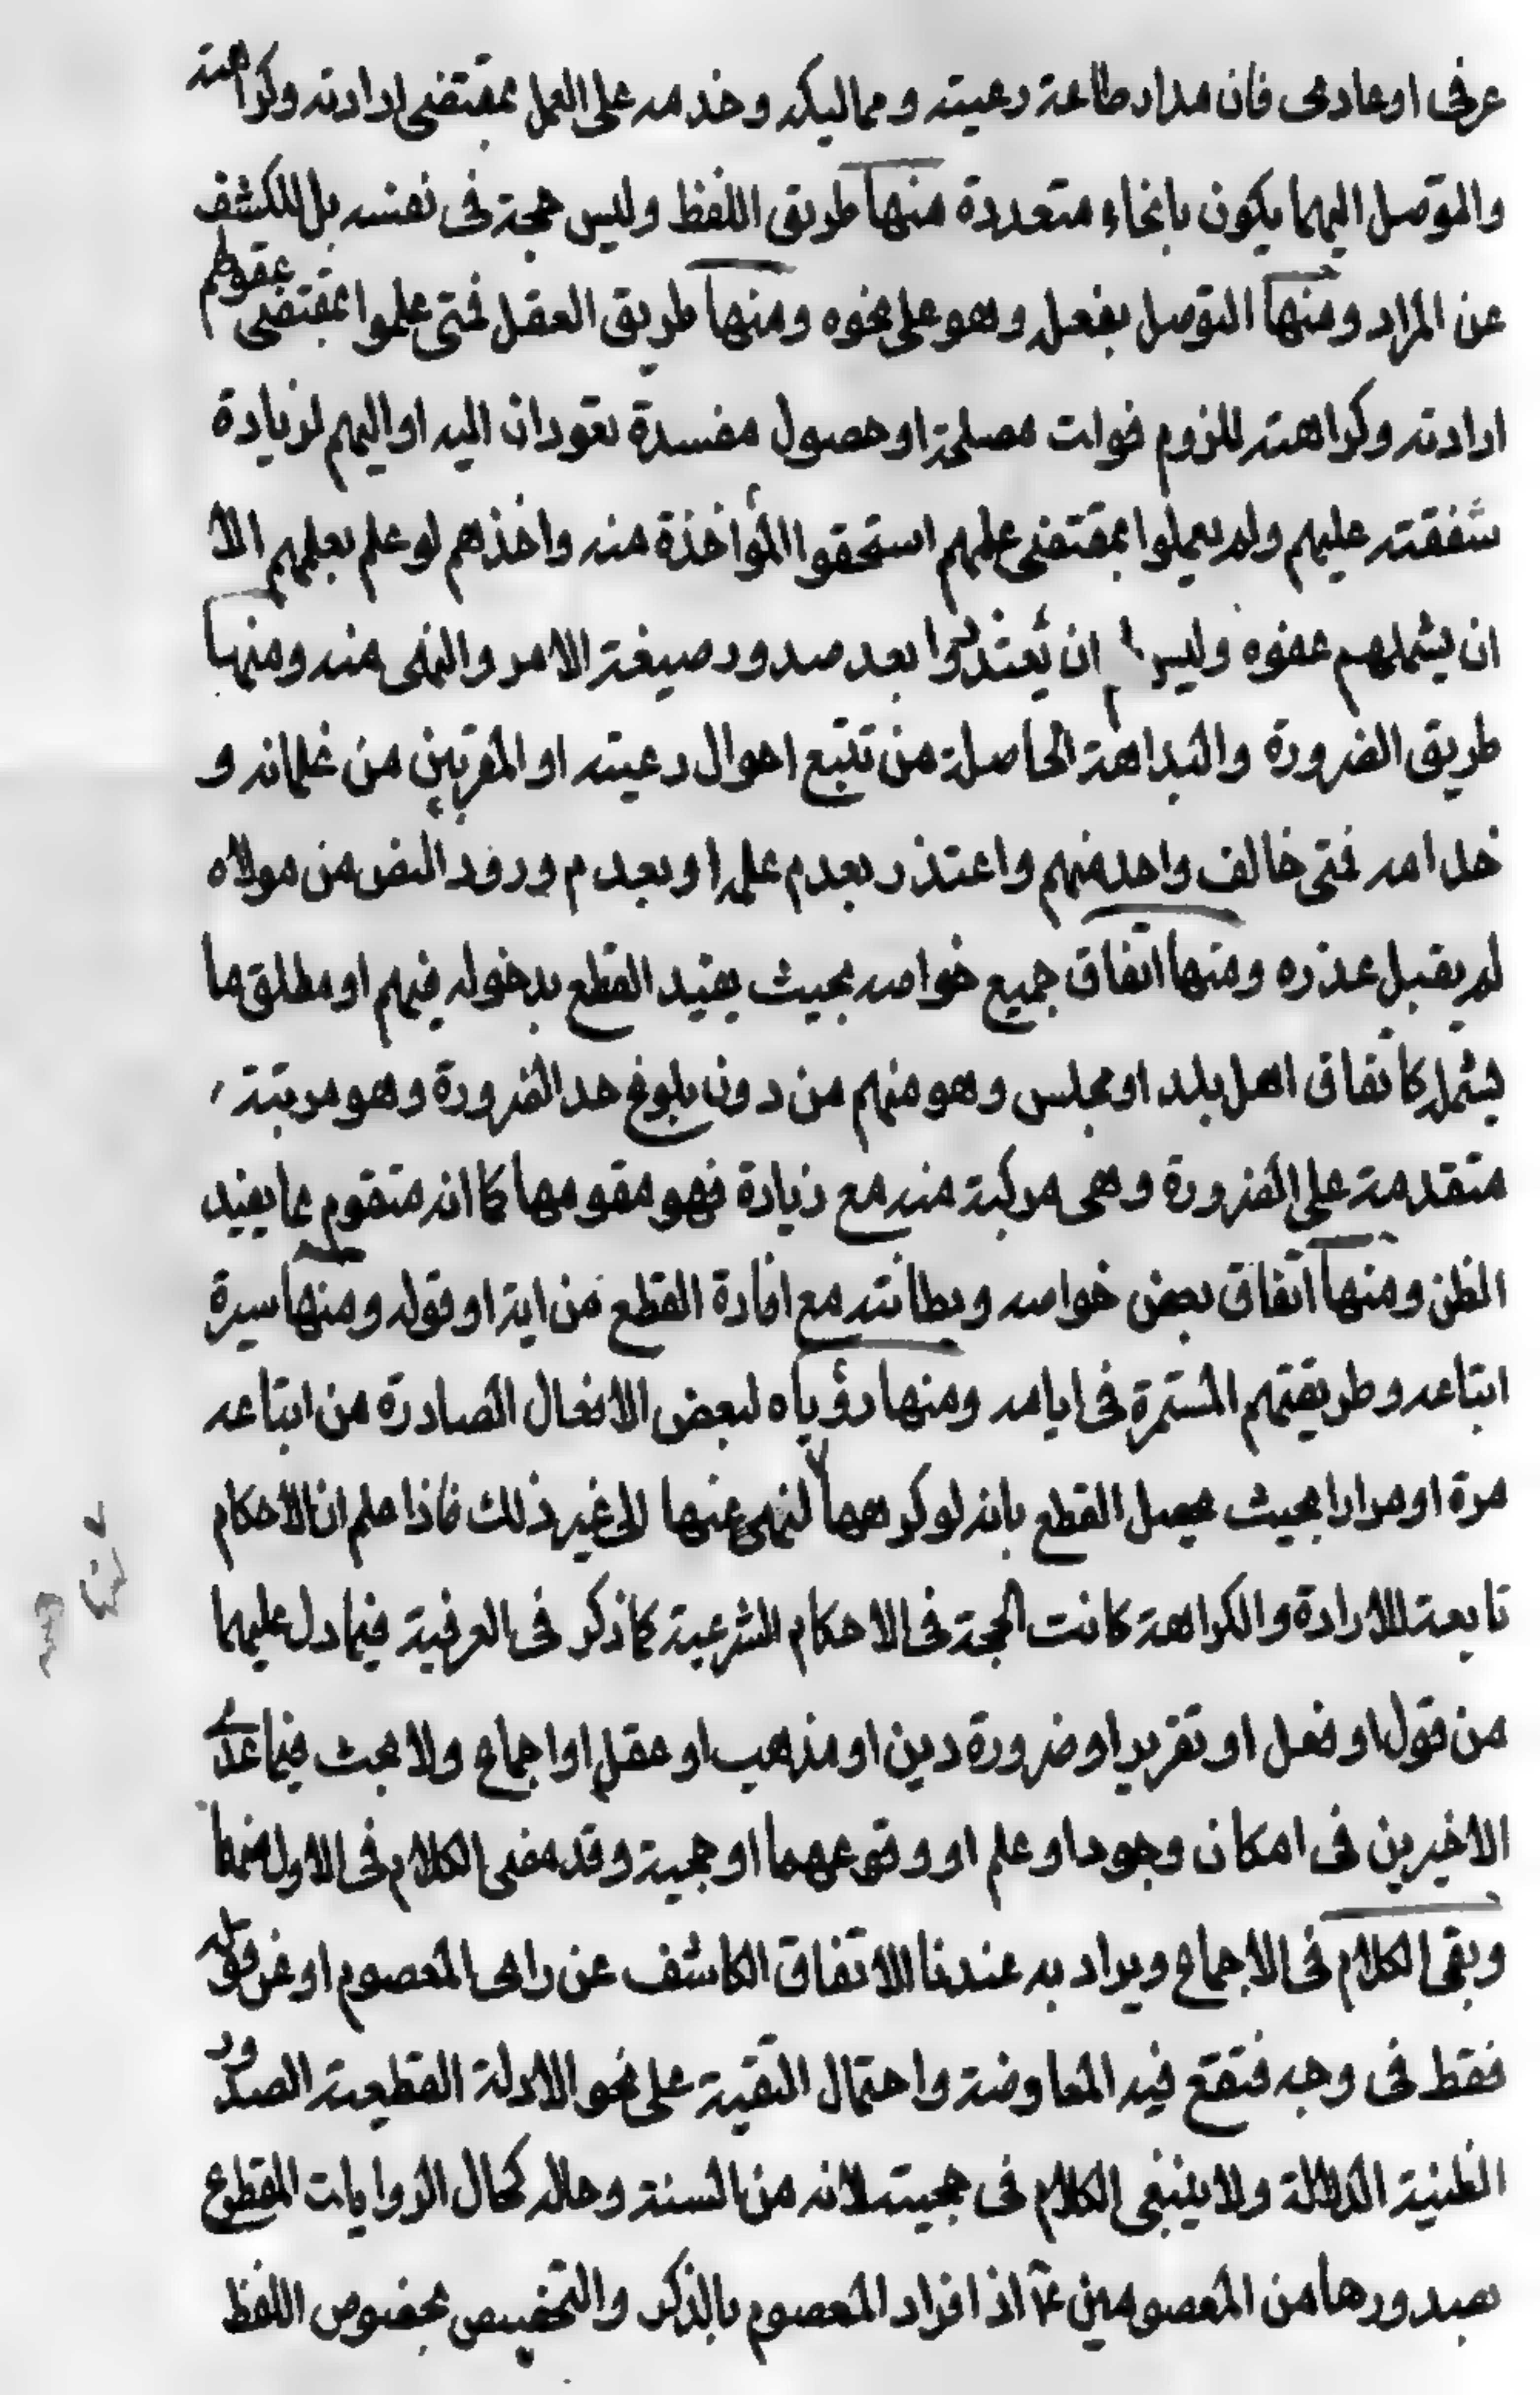 عرفى او عادى فان مدار طاعة رعيته ومماليكه وخدمه على العمل بمقتضى ارادته وكراهته
والتوصل اليهما يكون بانحاء متعددة منها طريق اللفظ وليس حجة فى نفسه بل للكشف
عن المراد ومنها التوصل بفعله وهو على نحوه ومنها طريق العقل فمتى علموا بمقتضى عقولهم
ارادته وكراهته للزوم فوات مصلحة او حصول مفسدة تعودان اليه او اليهم لزيادة
شفقته عليهم ولم يعملوا بمقتضى علمهم استحقوا المؤاخذة منه واخذهم لو علم بعلمهم الا
ان يشملهم عفوه وليس ان يعتذروا بعد صدور صيغة الامر والنهى منه ومنها
طريق الضرورة والبداهة الحاصلة من تتبع احوال رعيته او المقربين من غلمانه و
خدامه فمتى خالف واحد منهم واعتذر بعدم علمه او بعدم ورود النص من مولاه
لم يقبل عذره ومنها اتفاق جميع خواصه بحيث يفيد القطع بدخوله فيهم او مطلق ما
يشمله كاتفاق اهل بلد او مجلس وهو منهم من دون بلوغ حد الضرورة وهو مرتبة
متقدمة على الضرورة وهى مركبة منه مع زيادة فهو مقومها كما انه متقوم بما يفيد
الظن ومنها اتفاق بعض خواصه وبطانته مع افادة القطع من اية او قوله ومنها سيرة
اتباعه وطريقتهم المستمرة فى ايامه ومنها رؤياه لبعض الافعال الصادرة من اتباعه
مرة او مرارا بحيث يحصل القطع بانه لو كرهها لنهى عنها الى غير ذلك فاذا علم ان الاحكام
تابعة للارادة والكراهة كانت الحجة فى الاحكام الشرعية كما ذكر فى العرفية فيما دل عليهما
من قول او فعل او تقرير او ضرورة دين او مذهب او عقل او اجماع ولا بحث فيما عدى
الاخيرين فى امكان وجود او علم او وقوعهما او حجية وقد مضى الكلام فى الاول منهما
وبقى الكلام فى الاجماع ويراد به عندنا الاتفاق الكاشف عن راى المعصوم او عن قوله
فقط فى وجه فتقع فيه المعارضة واحتمال التقية على نحو الادلة القطعية الصدور
الظنية الدلالة ولا ينبغى الكلام فى حجيته لانه من السنة وحاله كحال الروايات المقطوع
بصدورها من المعصومين ع اذ افراد المعصوم بالذكر والتخصيص بخصوص اللفظ